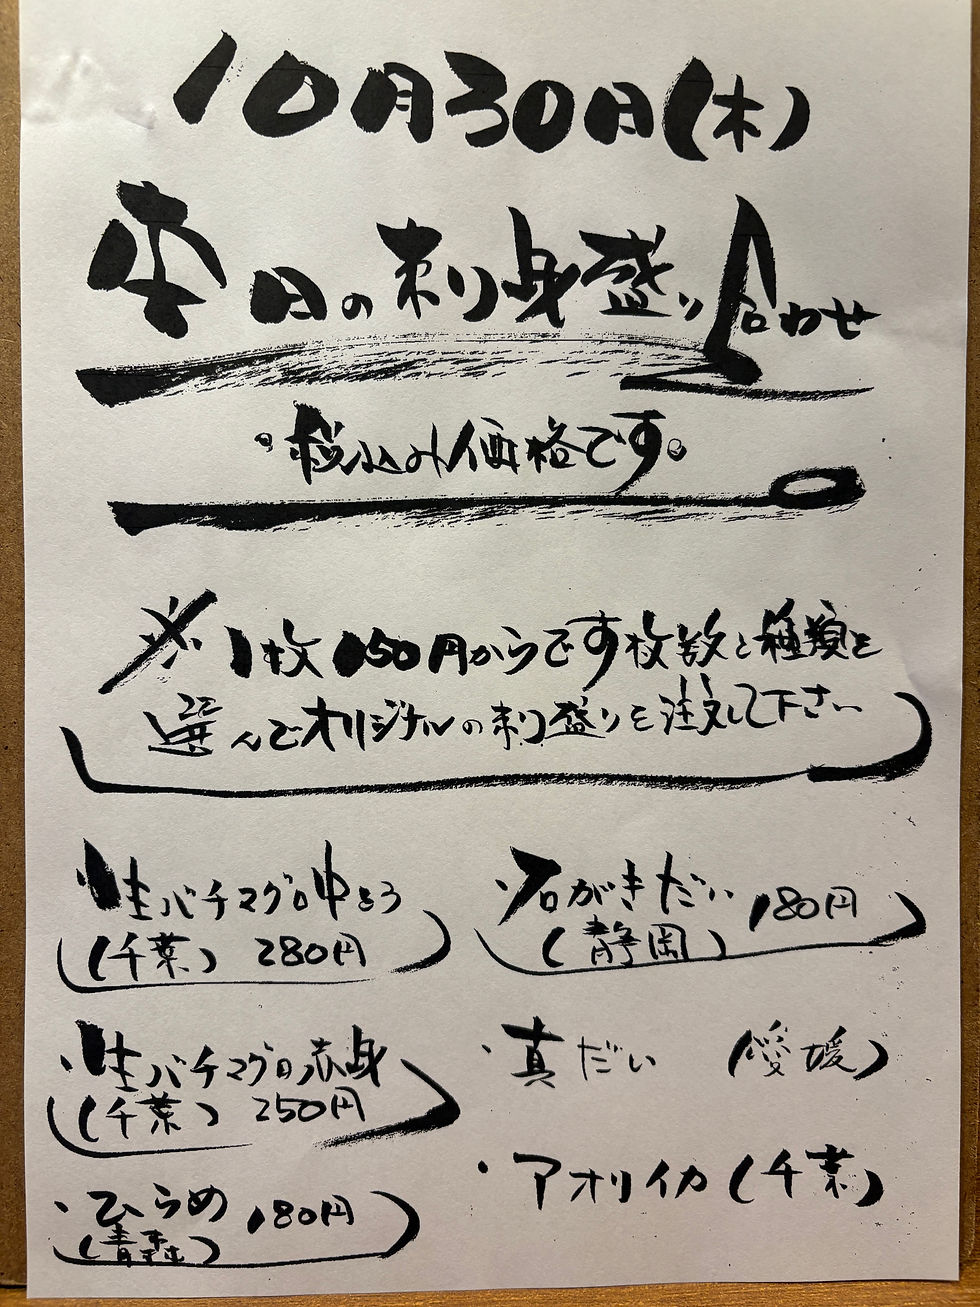 10月30日(木)
本日の刺身盛り合わせ
・税込み価格です。
※1枚150円からです枚数と種類を
選んでオリジナルの刺し盛りを注文して下さい
・生バチマグロ中とろ
(千葉) 280円
・生バチマグロ赤身
(千葉) 250円
・ひらめ 180円
(青森)
・石がきだい 180円
(静岡)
・真だい (愛媛)
・アオリイカ (千葉)